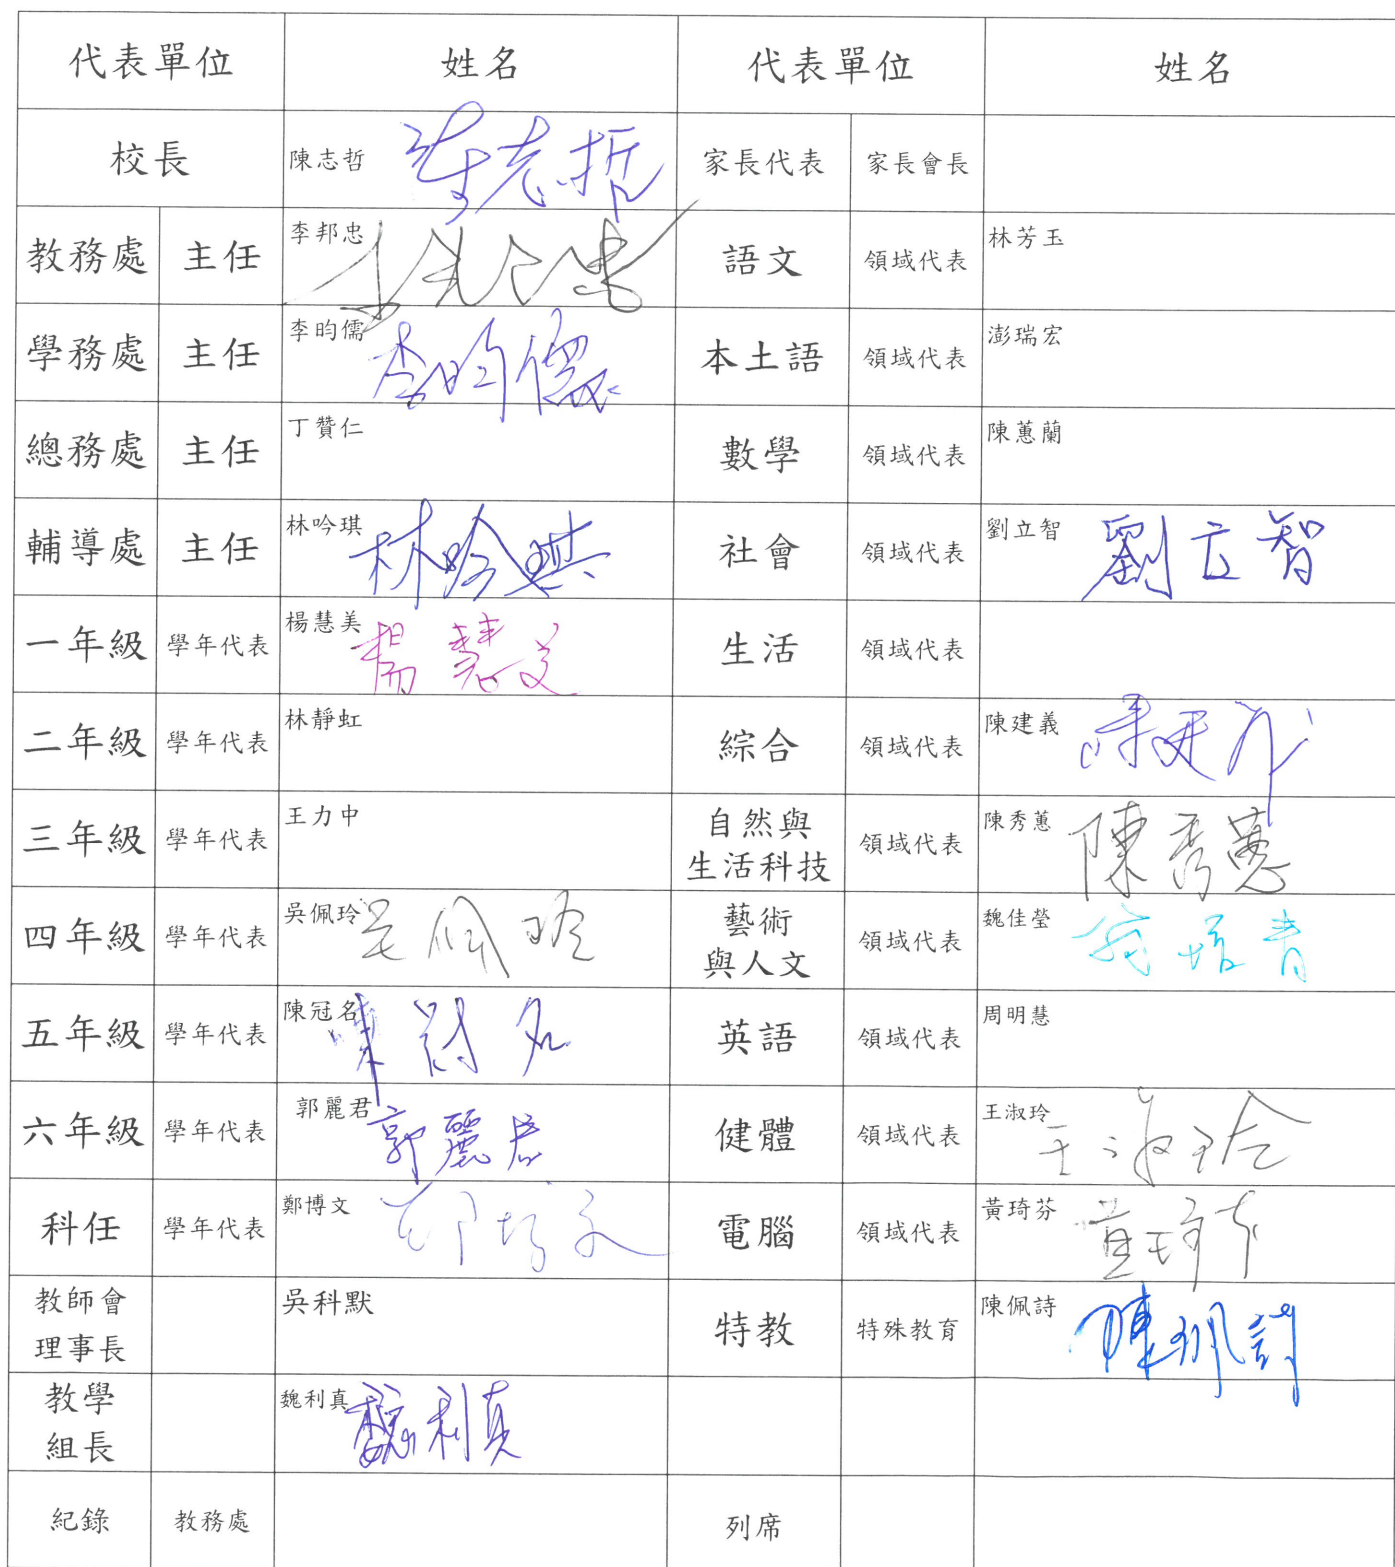 代表單位 姓名 代表單位 姓名
校長 陳志哲 陳志哲 家長代表 家長會長
教務處 主任 李邦忠 李邦忠 語文 領域代表 林芳玉
學務處 主任 李昀儒 李昀儒 本土語 領域代表 澎瑞宏
總務處 主任 丁贊仁 數學 領域代表 陳蕙蘭
輔導處 主任 林吟琪 林吟琪 社會 領域代表 劉立智 劉立智
一年級 學年代表 楊慧美 楊慧美 生活 領域代表
二年級 學年代表 林靜虹 綜合 領域代表 陳建義 陳建義
三年級 學年代表 王力中 自然與 領域代表 陳秀蕙 陳秀蕙
生活科技
四年級 學年代表 吳佩玲 吳佩玲 藝術 領域代表 魏佳瑩
與人文
五年級 學年代表 陳冠名 陳冠名 英語 領域代表 周明慧
六年級 學年代表 郭麗君 郭麗君 健體 領域代表 王淑玲 王淑玲
科任 學年代表 鄭博文 鄭博文 電腦 領域代表 黃琦芬 黃琦芬
教師會 吳科默 特教 特殊教育 陳佩詩 陳珮詩
理事長
教學 魏利真 魏利真
組長
紀錄 教務處 列席